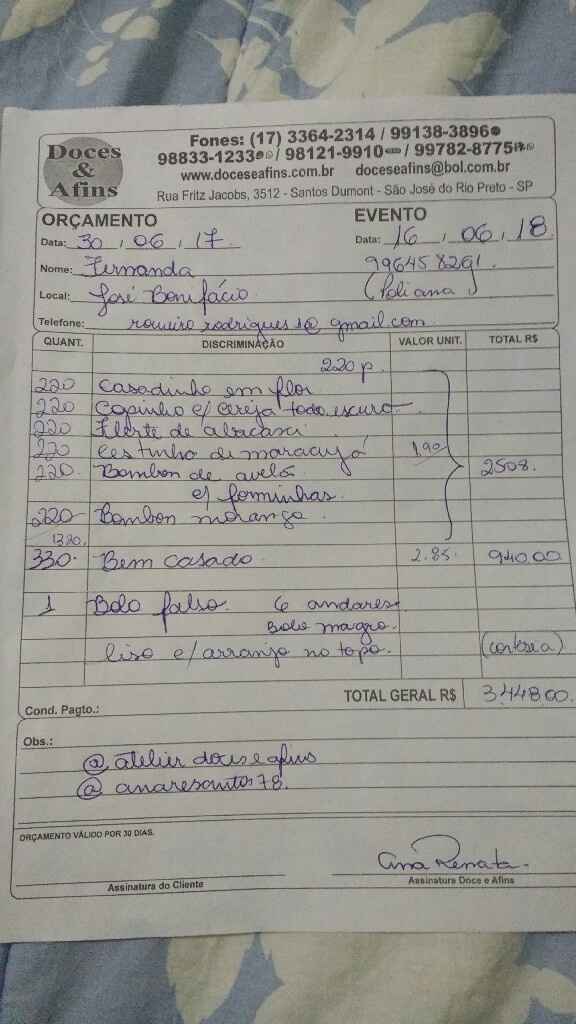 Doces & Afins
Fones: (17) 3364-2314 / 99138-3896
98833-1233 / 98121-9910 / 99782-8775
www.doceseafins.com.br doceseafins@bol.com.br
Rua Fritz Jacobs, 3512 - Santos Dumont - São José do Rio Preto - SP
ORÇAMENTO EVENTO
Data: 30 , 06 , 17. Data: 16 , 06 , 18.
Nome: Fernanda 996458291.
Local: José Bonifácio. (Poliana)
Telefone: @gmail.com
QUANT. DISCRIMINAÇÃO VALOR UNIT. TOTAL R$
220 p.
220 Casadinho em flor
220 Copinho c/ cereja todo escuro
220 Flerte de abacaxi
220 Cestinho de maracujá 1,90
220. Bombon de avelã 2508.
c/ forminhas.
220 Bombon morango
1320.
330. Bem casado. 2.85. 940.00
1 Bolo falso. 6 andares
Bolo magro.
liso c/ arranjo no topo. (cortesia)
TOTAL GERAL R$ 3.448.00.
Cond. Pagto.:
Obs.:
@ atelier doces e afins
@ anaresantos78.
ORÇAMENTO VÁLIDO POR 30 DIAS.
Ana Renata.
Assinatura do Cliente Assinatura Doce e Afins